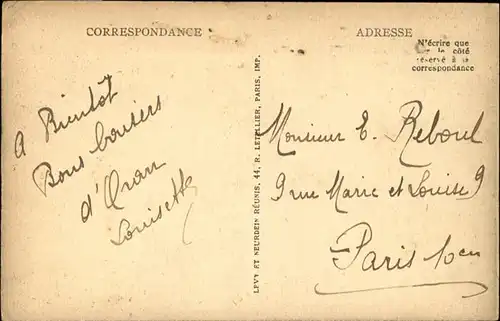 CORRESPONDANCE
A Bientôt
Bons baisers
d'Oran
Louisette
LEVY ET NEURDEIN RÉUNIS, 44, R. LETELLIER, PARIS, IMP.
ADRESSE
N'écrire que
le côté
réservé à la
correspondance
Monsieur E. Reboul
9 rue Marie et Louise 9
Paris 10en